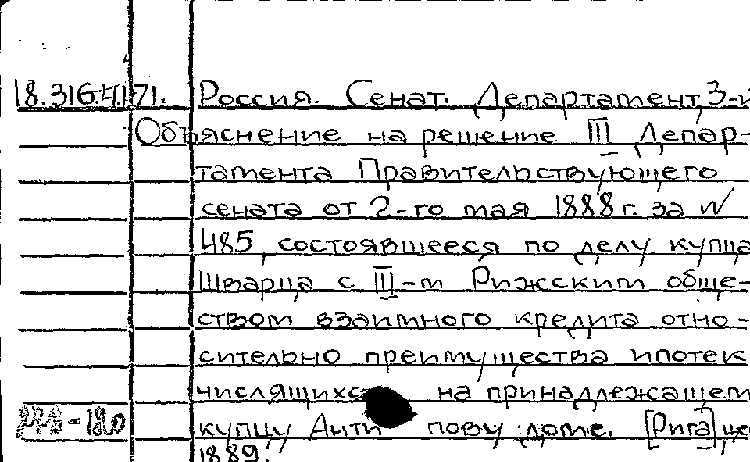 18.316.4.171. Россия. Сенат. Департамент, 3-й
Объяснение на решение III Депар-
тамента Правительствующего
сената от 2-го мая 1888 г. за №
485, состоявшееся по делу купца
Шварца с III-м Рижским обще-
ством взаимного кредита отно-
сительно преимущества ипотек
числящихся на принадлежащем
купцу пову доме. [Рига]
1889.